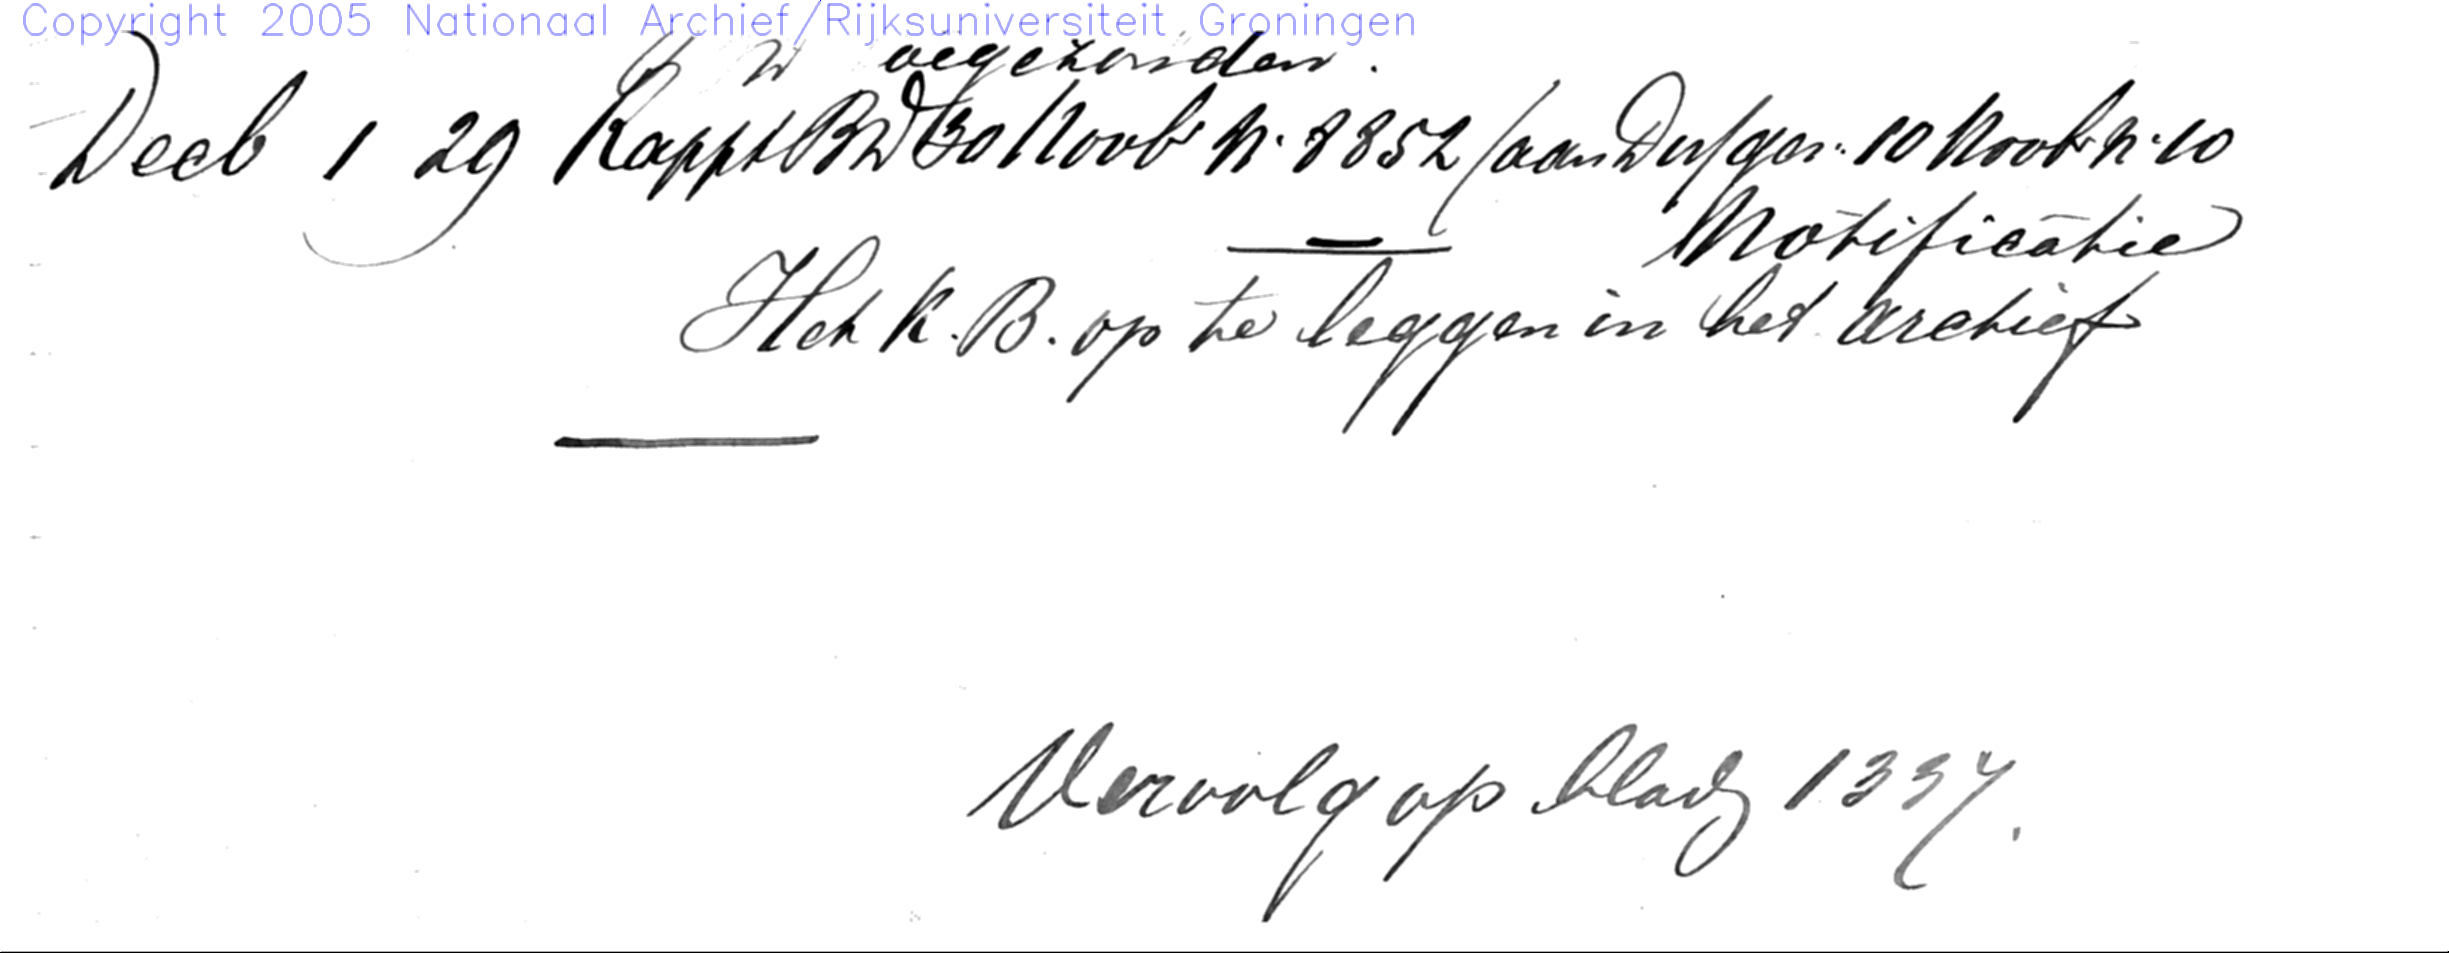 Copyright 2005 Nationaal Archief/Rijksuniversiteit Groningen
Decb 1 29 Rappt BW 30 Novb N. 8852 / aan ges. 10 Novb N. 10
Notificatie
Het K. B. op te leggen in het archief
Vervolg op bladz 1337.